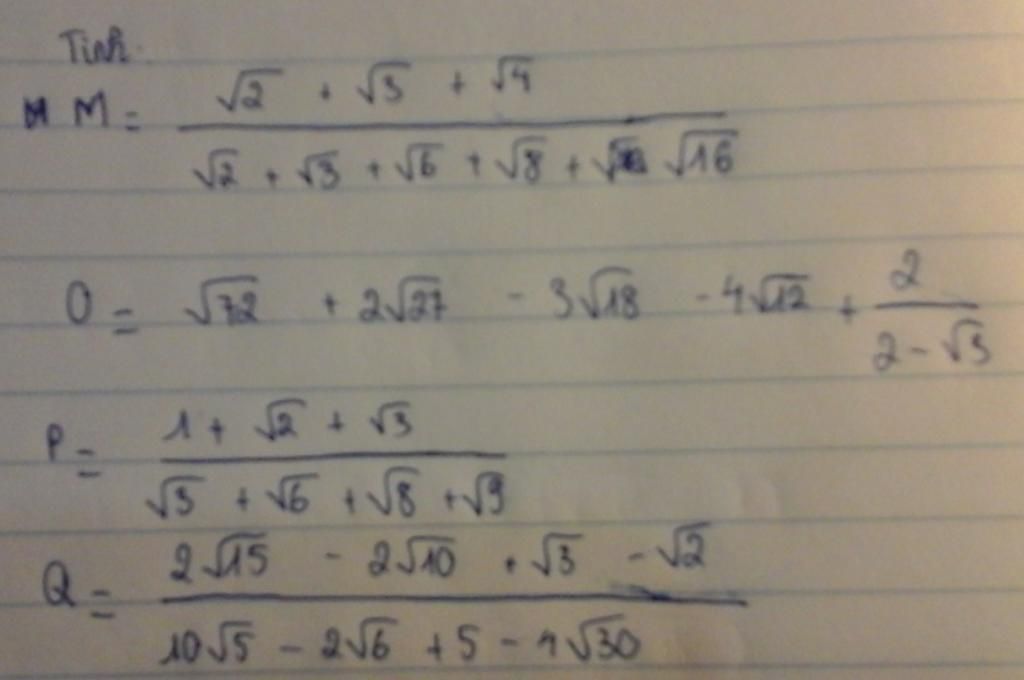 Tính.
M = \frac{√2 + √3 + √4}{√2 + √3 + √6 + √8 + √16}
O = √72 + 2√27 - 3√18 - 4√12 + \frac{2}{2 - √3}
P = \frac{1 + √2 + √3}{√3 + √6 + √8 + √9}
Q = \frac{2√15 - 2√10 + √3 - √2}{10√5 - 2√6 + 5 - 4√30}